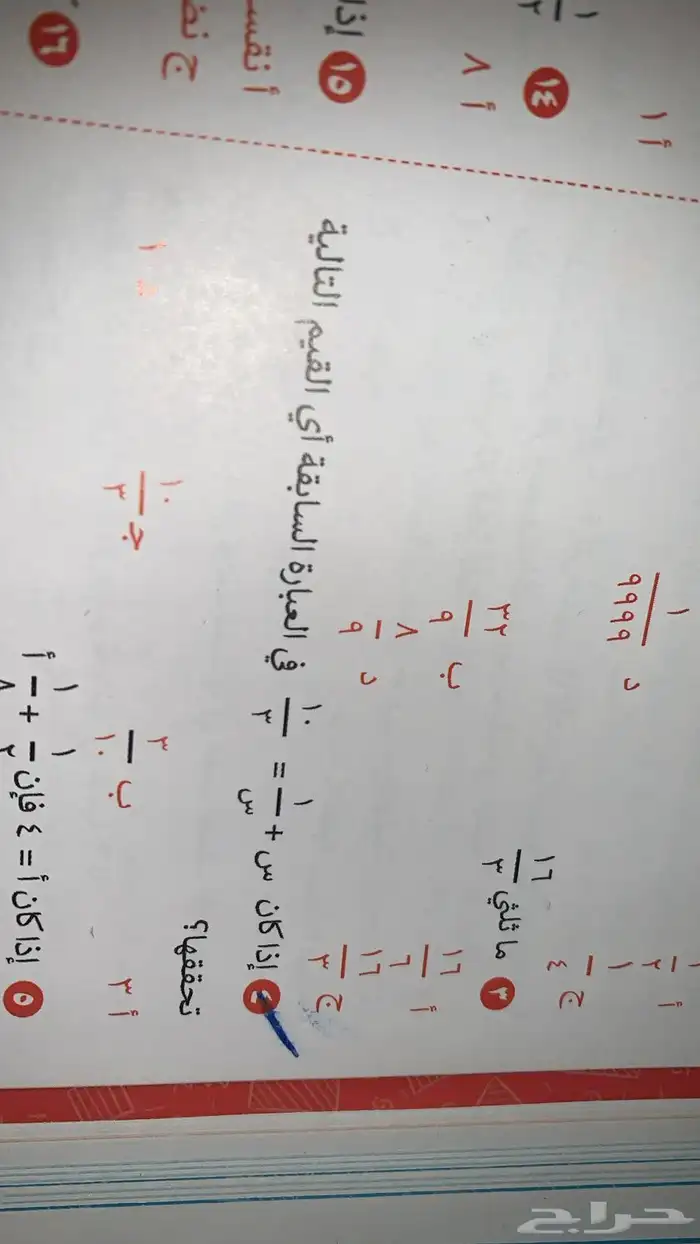 أ ١/٢
د ١/٩٩٩٩
ج ١/٤
٣ ما ثلثي ١٦/٣
أ ١٦/٦ ب ٣٢/٩
ج ١٦/٣ د ٨/٩
٤ إذا كان س + ١/س = ١٠/٣ في العبارة السابقة أي القيم التالية
تحققها؟
أ ٣ ب ٣/١٠ جـ ١٠/٣ ١
٥ إذا كان أ = ٤ فإن ١/٢ + ١/٨ أ
أ ١
١٤
أ ٨
١٥ إذا
أ نفس
ج نف
١٦
حراج